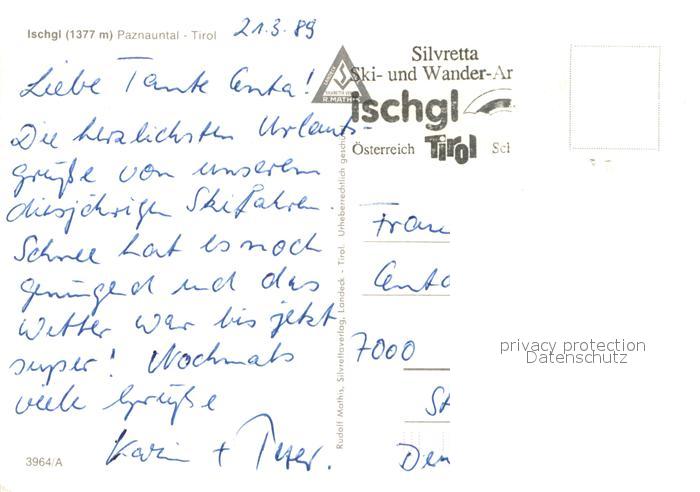 Ischgl (1377 m) Paznauntal - Tirol
21.3.89
Liebe Tante Anta!
Die herzlichsten Urlaubs-
grüße von unserem
diesjährigen Skifahren.
Schnee hat es noch
genügend und das
Wetter war bis jetzt
super! Nochmals
viele Grüße
Karin + Peter.
3964/A
Rudolf Mathis, Silvrettaverlag, Landeck - Tirol. Urheberrechtlich gesch
R. MATHIS
Silvretta
Ski- und Wander-Ar
ischgl
Österreich Tirol Sch
Frau
Anta
7000
St
Den
privacy protection
Datenschutz